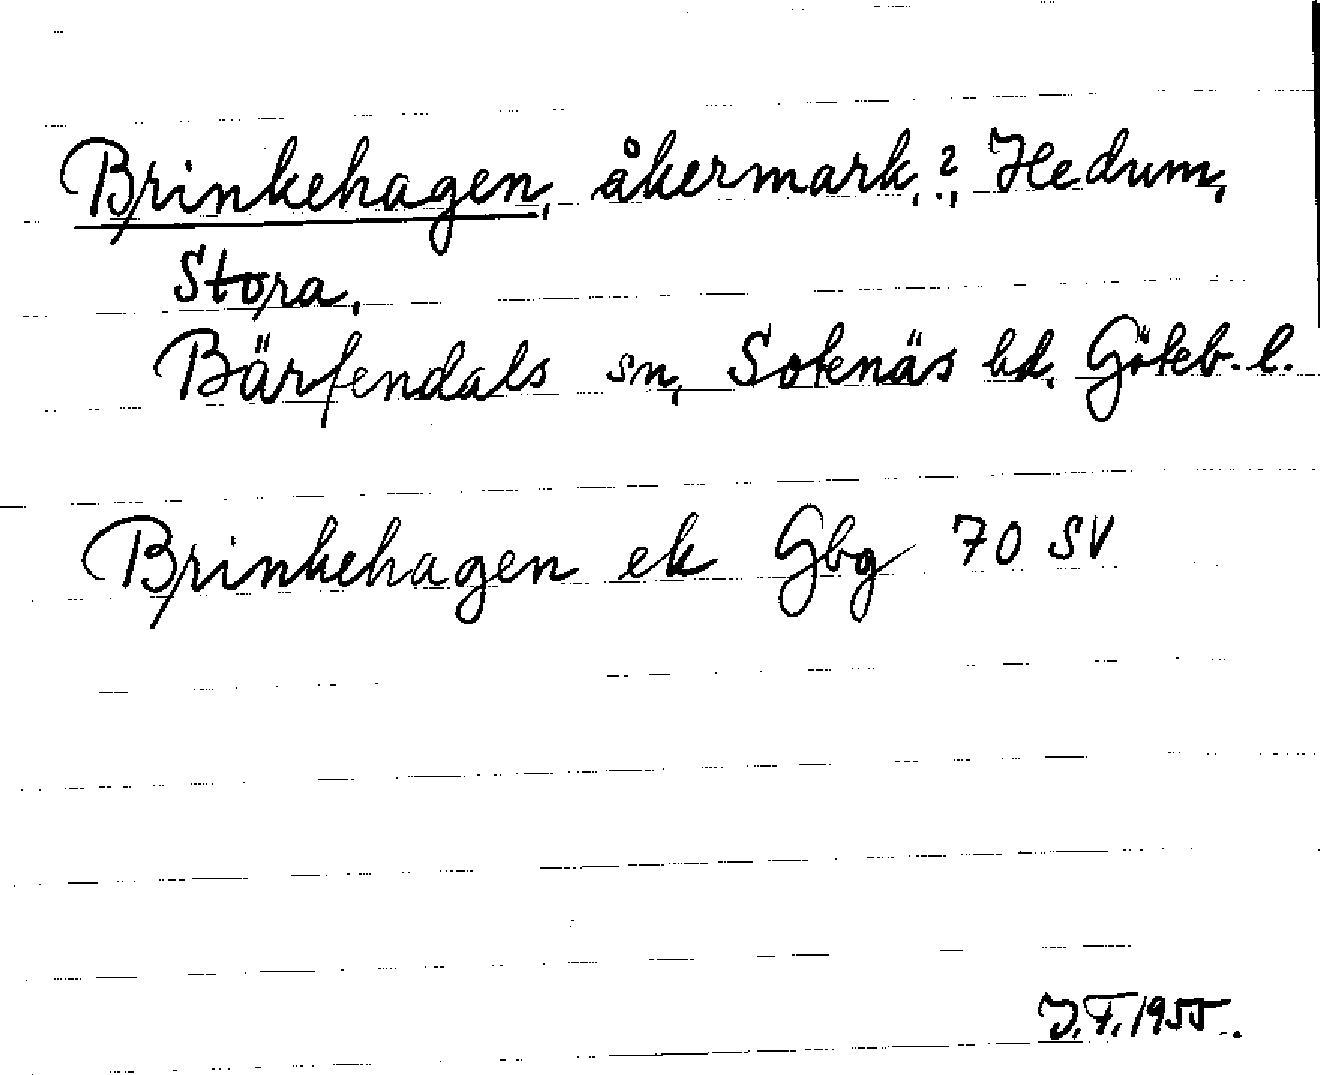 Brinkehagen, åkermark,?, Hedum,
Stora,
Bärfendals sn, Sotenäs hd. Göteb. l.
Brinkehagen ek Gbg 70 SV
J.F. 1955.